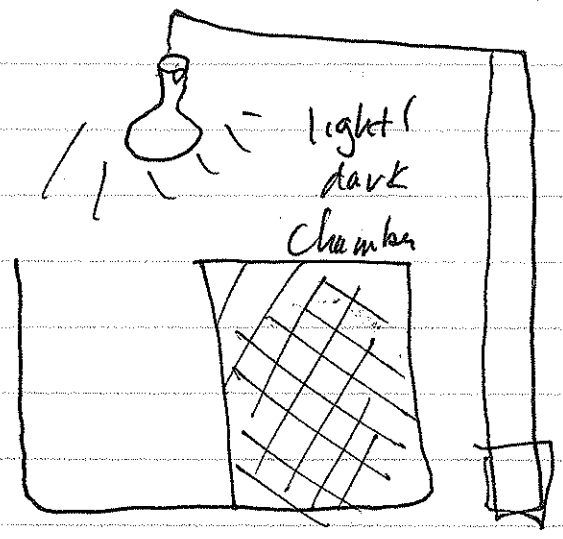 light/
dark
Chamber